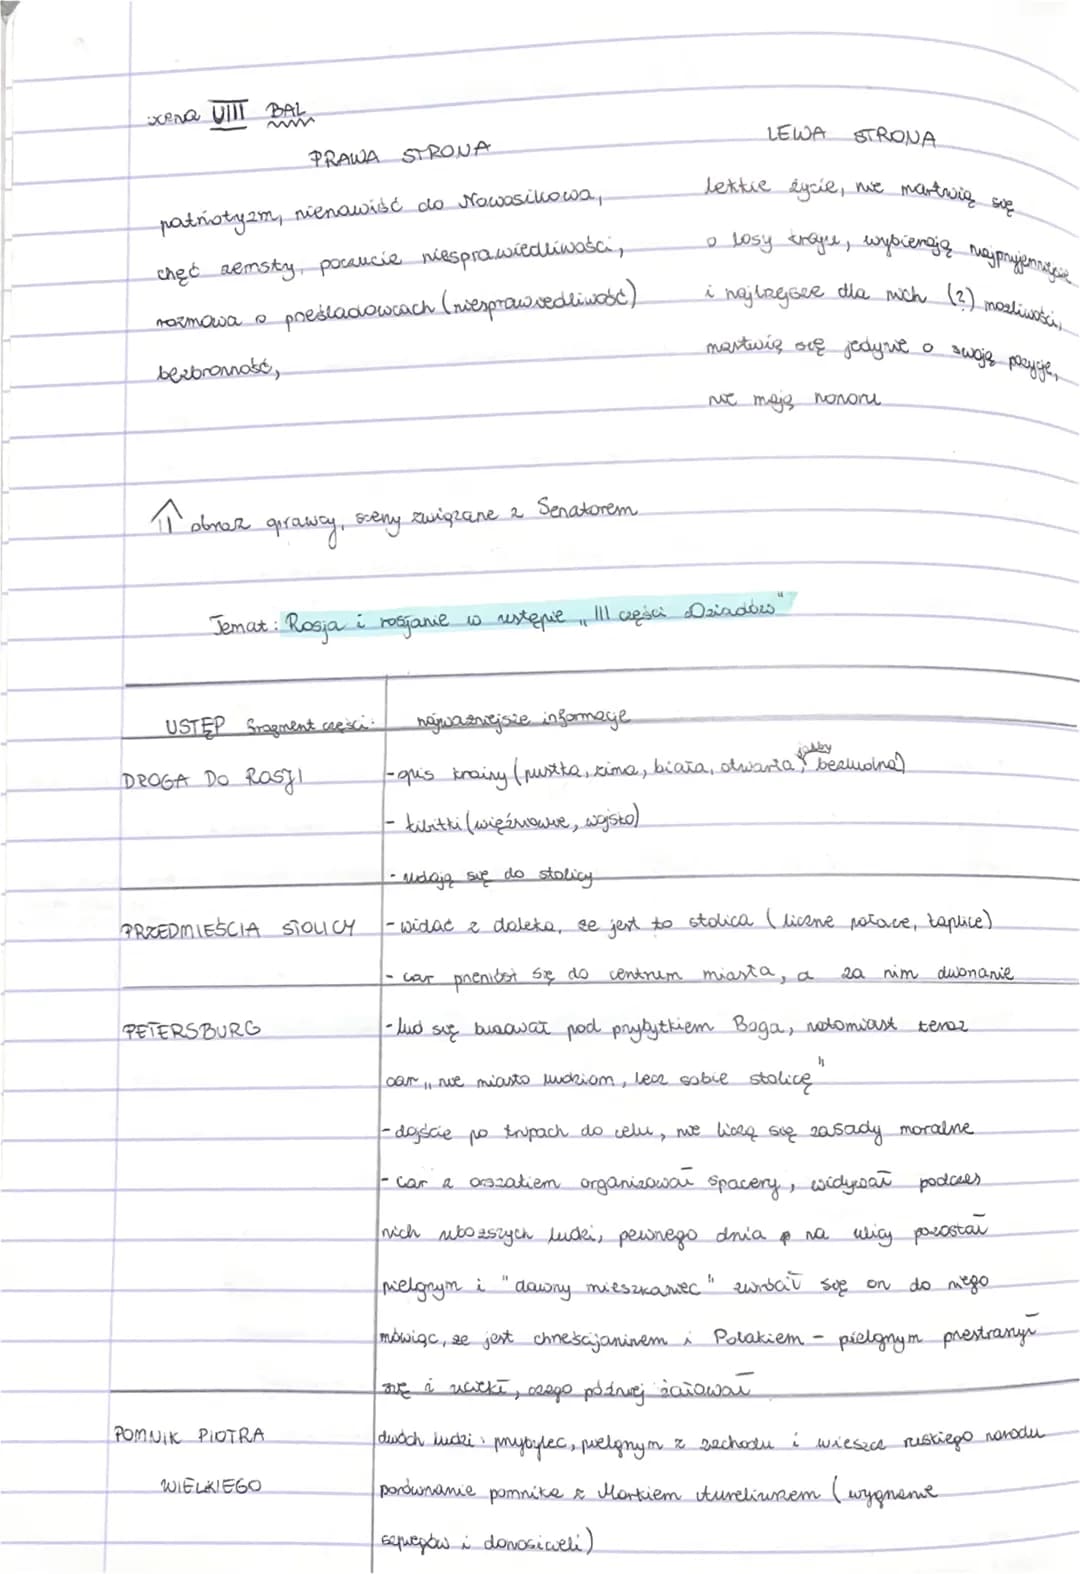 scena VIII BAL
PRAWA STRONA
patriotyzm, nienawiść do Nowosilcowa,
chęć zemsty, poczucie niesprawiedliwości,
rozmowa o prześladowcach (niesprawiedliwość)
bezbronność,
LEWA STRONA
lekkie życie, nie martwią się
o losy kraju, wybierają najprzyjemniejsze
i najlżejsze dla nich (?) możliwości,
martwią się jedynie o swoją pozycję,
nie mają honoru
⇑ obraz sprawcy, sceny związane z Senatorem
Temat: Rosja i rosjanie w ustępie „III części Dziadów"
USTĘP fragment części:
najważniejsze informacje
DROGA DO ROSJI
- opis krainy (pustka, zima, biała, otwarta, jakby bezludna)
- kibitki (więźniowie, wojsko)
- udają się do stolicy
PRZEDMIEŚCIA STOLICY
- widać z daleka, że jest to stolica (liczne pałace, kaplice)
- car przeniósł się do centrum miasta, a za nim dworzanie
PETERSBURG
- lud się budował pod przybytkiem Boga, natomiast teraz
car „nie miasto ludziom, lecz sobie stolicę"
- dojście po trupach do celu, nie liczą się zasady moralne
- car z orszakiem organizował spacery, widywał podczas
nich uboższych ludzi, pewnego dnia na ulicy pozostał
pielgrzym i "dawny mieszkaniec" zwrócił się on do niego
mówiąc, że jest chrześcijaninem i Polakiem - pielgrzym przestraszył
się i uciekł, czego później żałował
POMNIK PIOTRA
WIELKIEGO
dwóch ludzi: przybylec, pielgrzym z zachodu i wieszcz ruskiego narodu
porównanie pomnika z Markiem Aureliuszem (wygnanie
szpiegów i donosicieli)